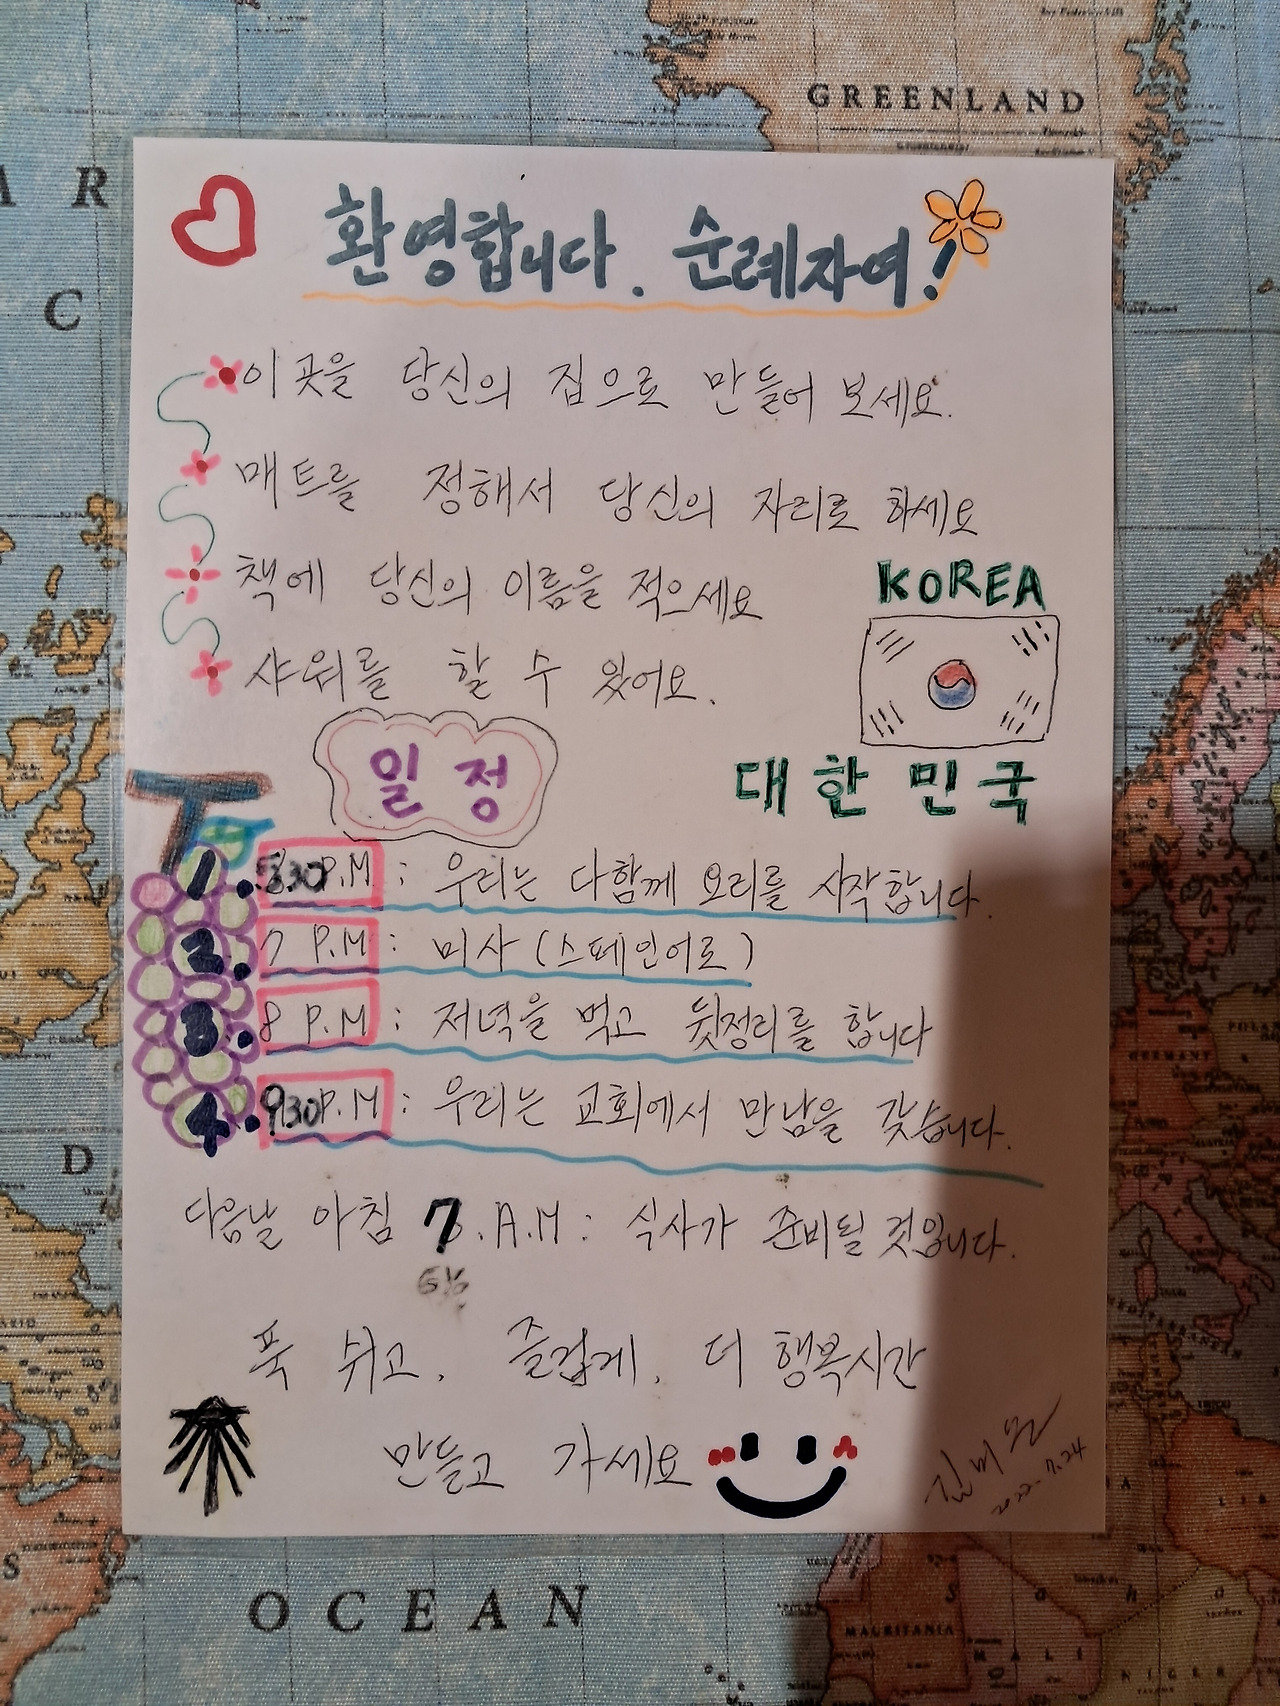 GREENLAND
환영합니다. 순례자여!
이곳을 당신의 집으로 만들어 보세요.
매트를 정해서 당신의 자리로 하세요
책에 당신의 이름을 적으세요
KOREA
샤워를 할 수 있어요.
일정
대한민국
1. 530 P.M : 우리는 다함께 요리를 시작합니다.
2. 7 P.M : 미사 (스페인어로)
3. 8 P.M : 저녁을 먹고 뒷정리를 합니다
4. 930 P.M : 우리는 교회에서 만남을 갖습니다.
다음날 아침 7.A.M : 식사가 준비될 것입니다.
푹 쉬고, 즐겁게, 더 행복시간
만들고 가세요
OCEAN
MAURITANIA
MALI
NIGER